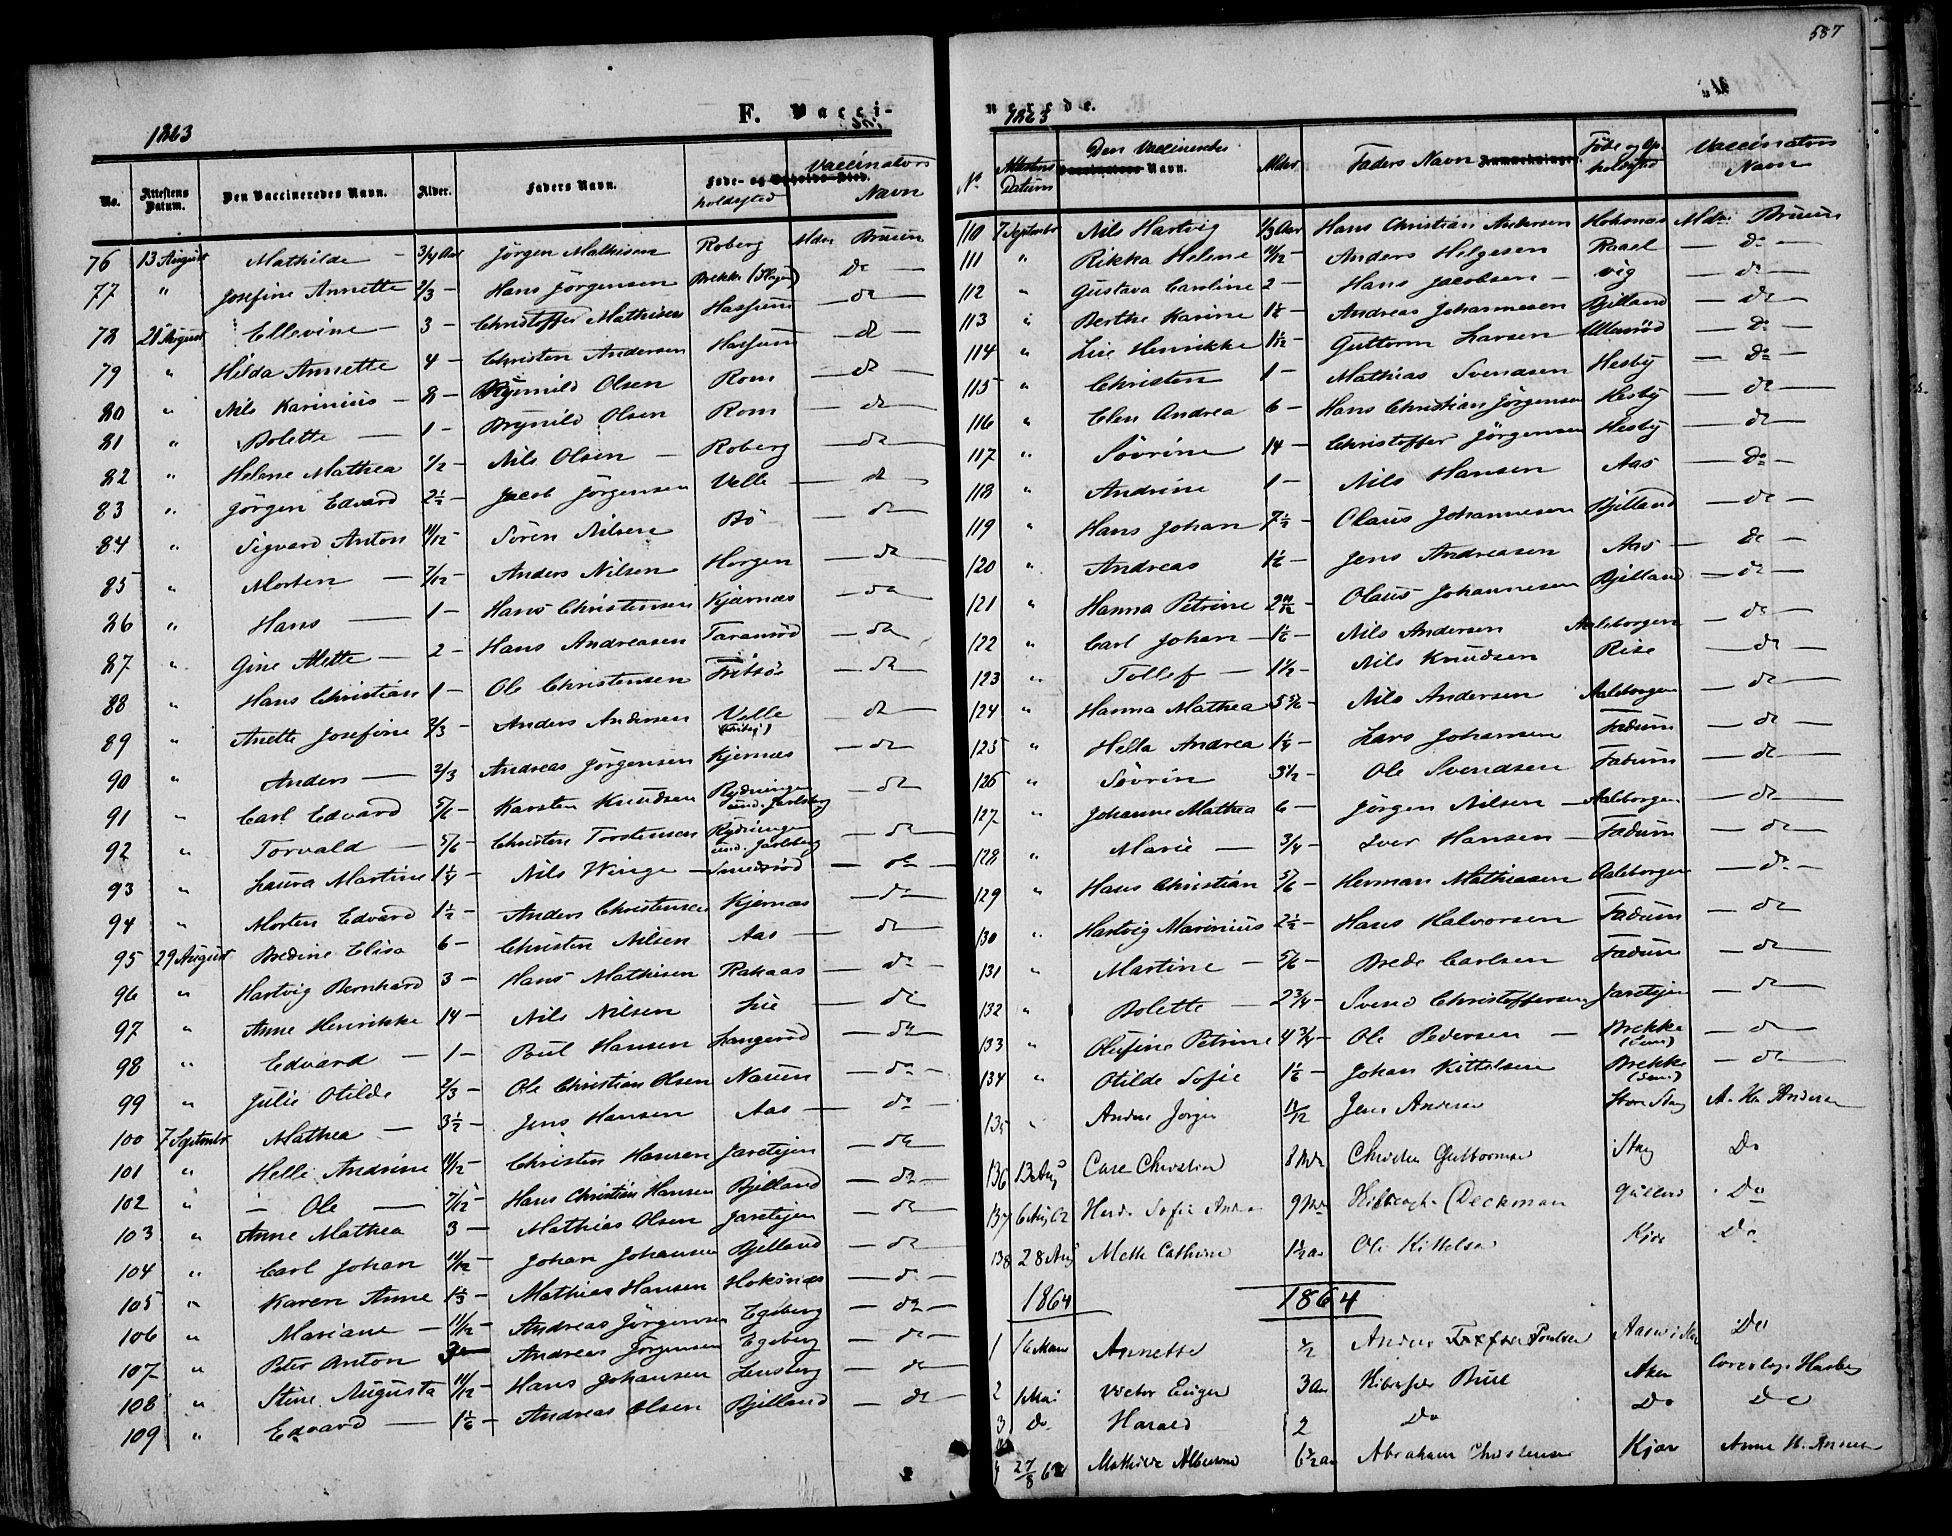 587
F. Vacci-
1863
No. Attestens Datum. Den Vaccineredes Navn. Alder. Faders Navn. Føde- og Opholds-Sted. holdssted Vaccinators Navn
76 13 August Mathilde - 3/4 Aar Jörgen Mathisen Roberg Mdm Bruun
77 " Josefine Annette 2/3 - Hans Jörgensen Brekke (Slagen) do
78 21 August Ellevine - 3 - Christoffer Mathisen Hassum do
79 " Hilda Annette 4 - Christen Andersen Hassum do
80 " Nils Karinius - 8 - Brynild Olsen Rom do
81 " Bolette - 1 - Brynild Olsen Rom do
82 " Helene Mathea 1/2 - Nils Olsen - Roberg do
83 " Jörgen Edvard 2 1/2 - Jacob Jörgensen Velle do
84 " Sigvard Anton 11/12 - Sören Nilsen Bö do
85 " Morten - 7/12 - Anders Nilsen Horgen do
86 " Hans - 1 - Hans Christensen Kjærnæs do
87 " Gine Mette - 2 - Hans Andreasen Taranrød do
88 " Hans Christian 1 - Ole Christensen Fritsö do
89 " Anette Josefine 2/3 - Anders Andersen Velle do
90 " Anders - 2/3 Andreas Jörgensen Kjernæs do
91 " Carl Edvard 5/6 - Karsten Knudsen Rydningen und. Jarlsberg do
92 " Torvald - 5/6 - Christen Torstensen Rydningen und. Jarlsberg do
93 " Laura Martine 1 1/4 - Nils Winge - Smidsrød do
94 " Morten Edvard 1 1/2 - Anders Christensen Kjernæs do
95 29 August Bredine Elisa 6 - Christen Nilsen Aas do
96 " Hartvig Bernhard 3 - Hans Mathisen Rakaas do
97 " Anne Henrikke 14 - Nils Nilsen Lie do
98 " Edvard - 1 - Poul Hansen Langerød do
99 " Julie Otilde 2/3 - Ole Christian Olsen Nauen do
100 7 September Mathea - 3 1/2 - Jens Hansen Aas do
101 " Helle Andrine 11/12 - Christen Hansen Jaretejen do
102 " - Ole - 7/12 - Hans Christian Hansen Bjelland do
103 " Anne Mathea 3 - Mathias Olsen Jaretejen do
104 " Carl Johan 11/12 - Johan Johansen Bjelland do
105 " Karen Anne 1 1/3 - Mathias Hansen Hoksnæs do
106 " Mariane - 11/12 - Andreas Jörgensen Egeberg do
107 " Peter Anton 3 Andreas Jörgensen Egeberg do
108 " Stine Augusta 11/12 - Hans Johansen Lensberg do
109 " Edvard - 1 1/6 - Andreas Olsen Bjelland do
nerede.
1863
No Attestens Datum Den Vaccineredes Navn. Alder Faders Navn Anmærkninger. Föde og Opholdssted Vaccinators Navn
110 7 September Nils Hartvig 1/3 Aar Hans Christian Andersen Hoksnæs Mdm Bruun
111 " Rikka Helene 11/12 - Anders Helgesen Raael - do -
112 " Gustava Caroline 2 - Hans Jacobsen - Vig - do -
113 " Berthe Karine 1 1/2 - Andreas Johannesen Bjelland - do
114 " Lise Henrikke 1 1/12 - Guttorm Larsen Ullenrød - do -
115 " Christen 1 - Mathias Svendsen Hesby - do -
116 " Elen Andrea 6 - Hans Christian Jörgensen Hesby - do
117 " Sövrine 14 - Christoffer Jörgensen Hesby - do
118 " Andrine 1 - Nils Hansen Aas - do -
119 " Hans Johan 7 1/2 - Olaus Johannesen Bjelland - do -
120 " Andreas 1 1/6 - Jens Andreasen Aas - do -
121 " Hanna Petrine 2 11/12 - Olaus Johannesen Bjelland - do -
122 " Carl Johan - 1 1/6 - Nils Andersen Aaleborgen - do
123 " Tollef - 1 1/2 - Nils Knudsen Rise - do -
124 " Hanna Mathea 5 5/6 - Nils Andersen Aaleborgen - do
125 " Hella Andrea 1 1/4 - Lars Johansen Fadum - do
126 " Sövrin 3 1/2 - Ole Svendsen Fadum - do
127 " Johanne Mathea 6 - Jörgen Nilsen - Aaleborgen - do
128 " Marie - 3/4 - Iver Hansen - Fadum - do
129 " Hans Christian 5/6 - Herman Mathiasen Aaleborgen - do -
130 " Hartvig Marinius 2 1/2 - Hans Halvorsen Fadum - do
131 " Martine - 5/6 - Brede Carlsen Fadum - do
132 " Bolette - 2 3/4 - Svend Christoffersen Jaretejen - do
133 " Olufine Petrine 4 3/4 - Ole Pedersen - Brekke (Sem) - do
134 " Otilde Sofie 1 1/6 - Johan Kittelsen Brekke (Sem) - do
135 " Anders Jörgen 11/12 Jens Andersen Store Stang A. Andersen
136 13 Aug Carl Christian 8 Mdr Christen Guttormsen Stang Do
137 6 Aug 62 Sofie 9 Mdr Deckman Do
138 28 Aug Mette Cathrine 1 1/2 aar Ole Kittelsen Kjær Do
1864 1864
1 Annette 1/2 Anders Poulsen Do
2 Mai Victor Eugen 3 Aar Bull Aker
3 Do Harald 2 Do Do Do
4 27/8 62 Mathilde 6 1/2 aar Abraham Christensen Kjær Anne